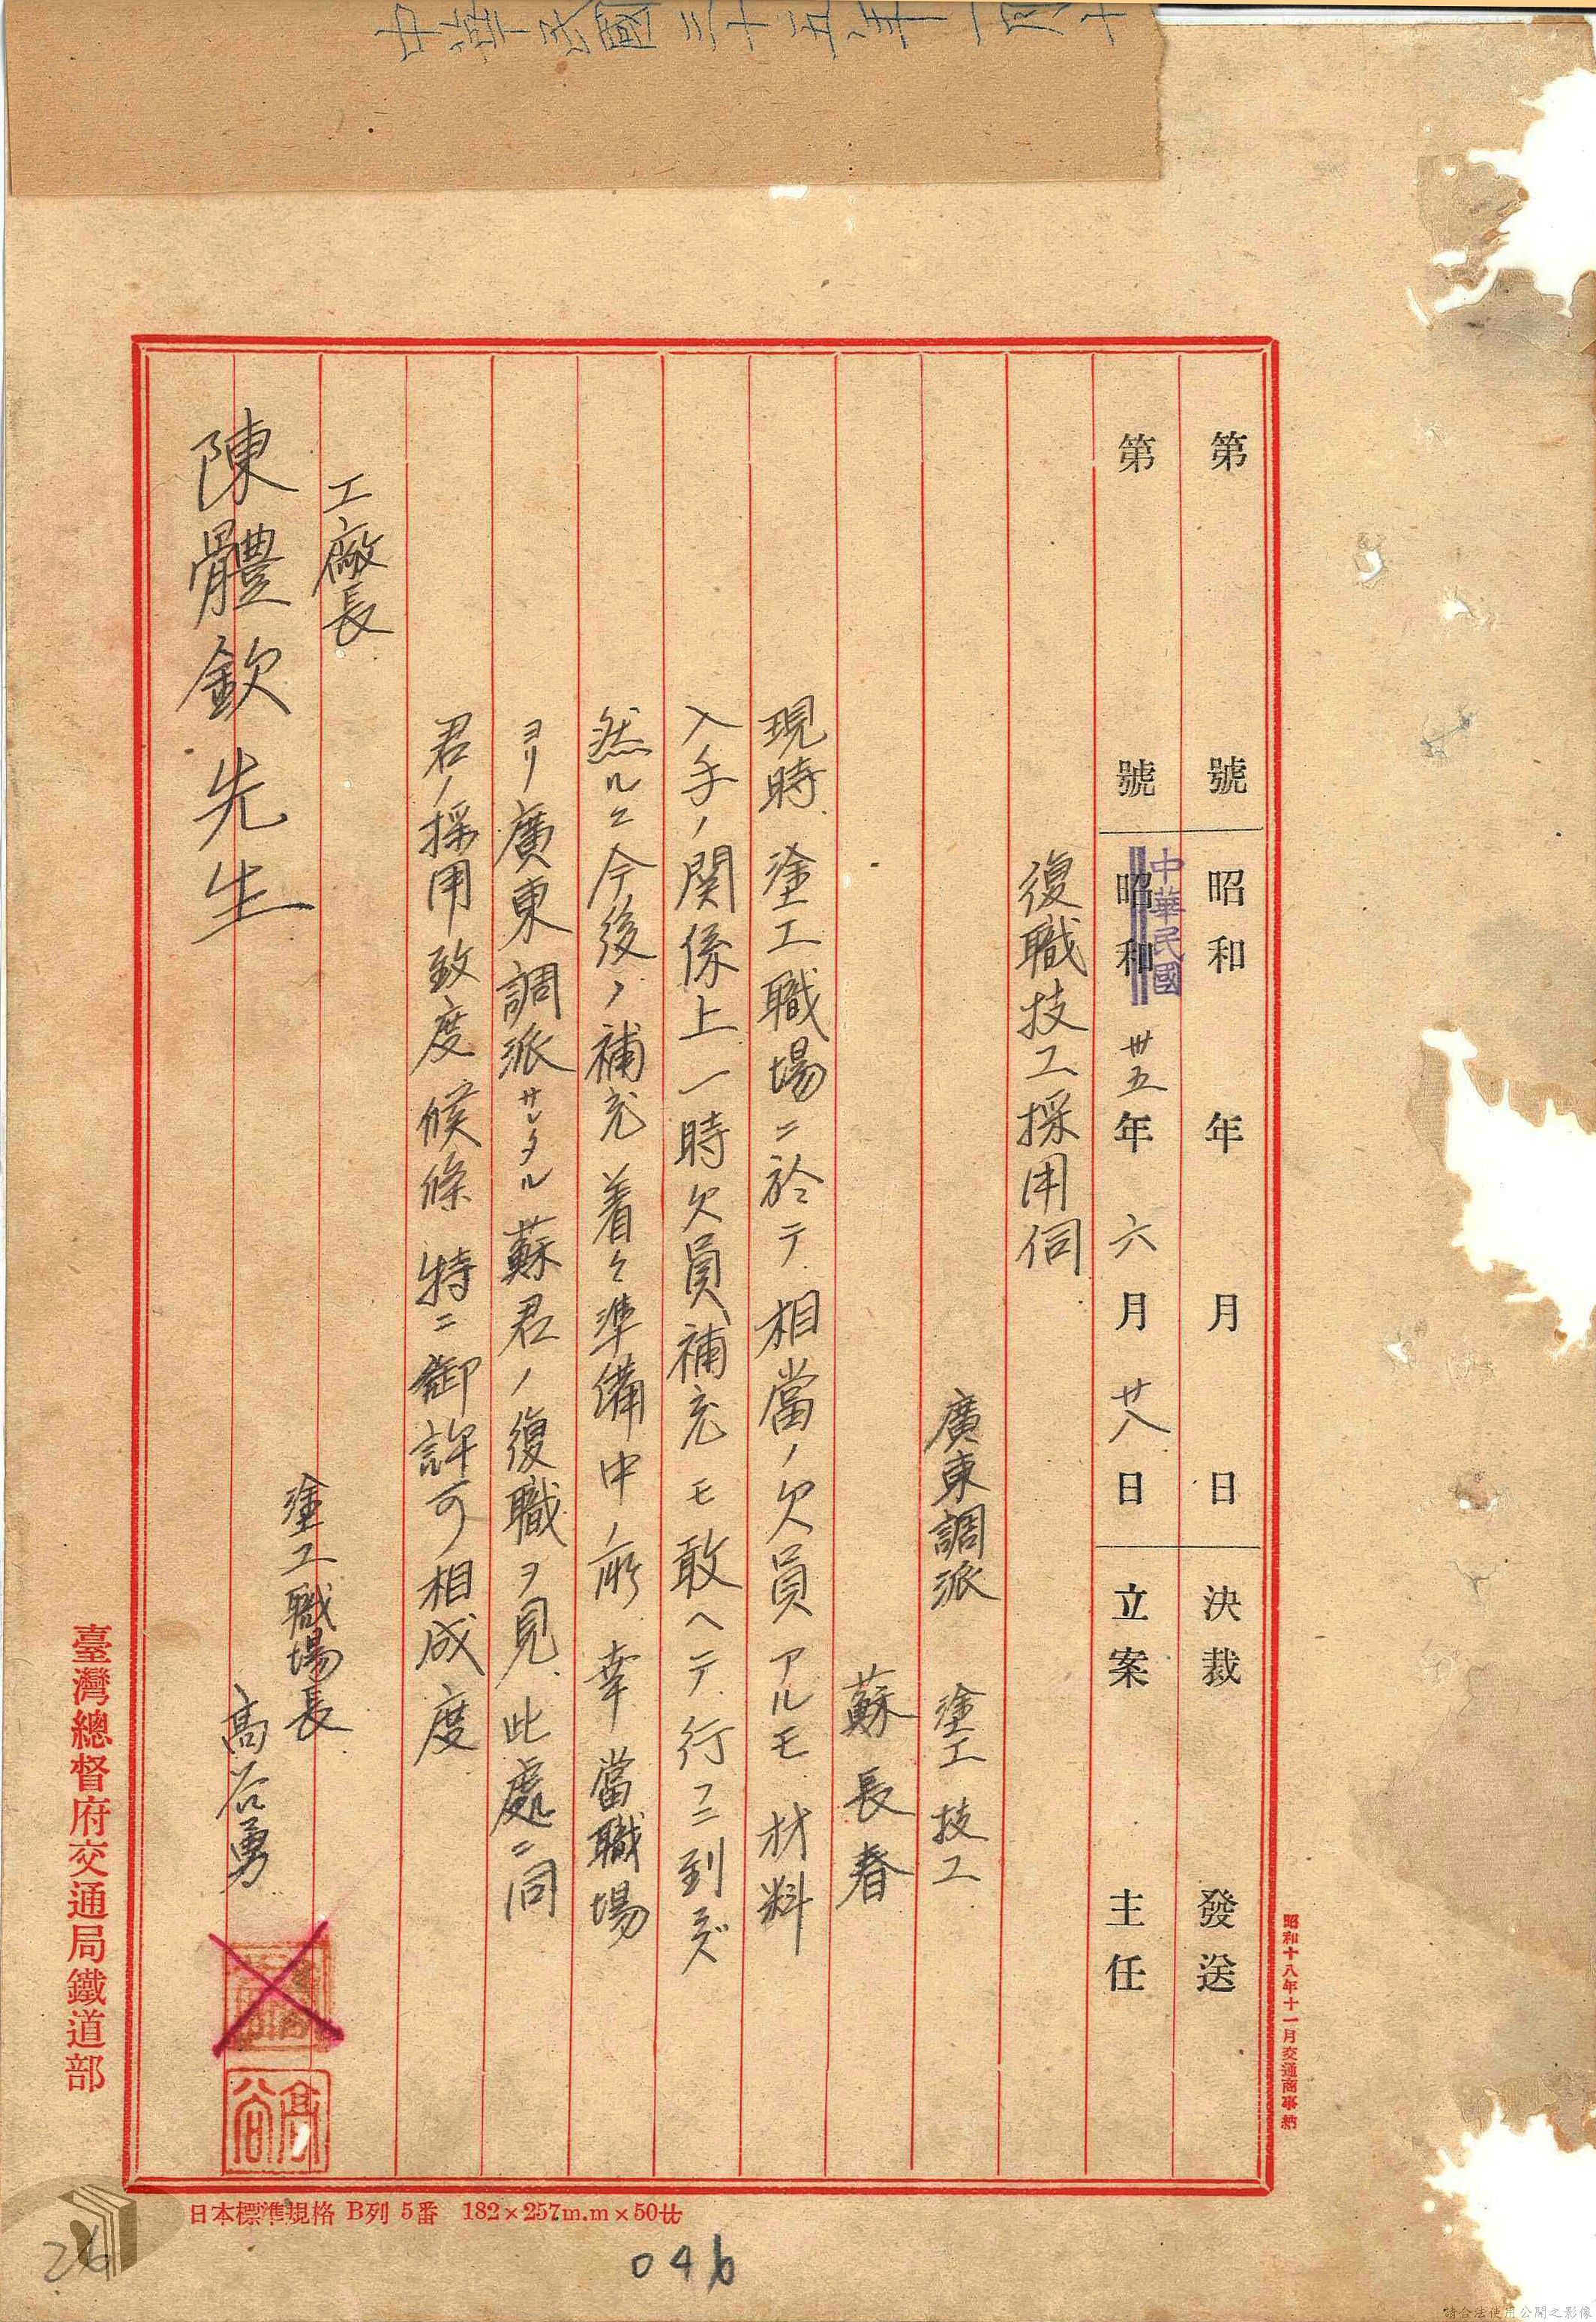 中華民國三十五年一月十
第 號 昭和 年 月 日 決裁 發送
第 號 昭和 中華民國 卅五年 六月 廿八日 立案 主任
復職技工採用伺
廣東調派 塗工技工
蘇長春
現時塗工職場ニ於テ相當ノ欠員アルモ材料
入手ノ関係上一時欠員補充モ敢ヘテ行フニ到ラズ
然ルニ今後ノ補充着々準備中ノ所幸當職場
ヨリ廣東調派サレタル蘇君ノ復職ヲ見此處ニ同
君ノ採用致度候條特ニ御許可相成度
塗工職場長
高谷勇
工廠長
陳體欽先生
高谷
臺灣總督府交通局鐵道部
昭和十八年十一月交通商事納
日本標準規格 B列 5番 182×257m.m×50廿
046
26
請合法使用公開之影像